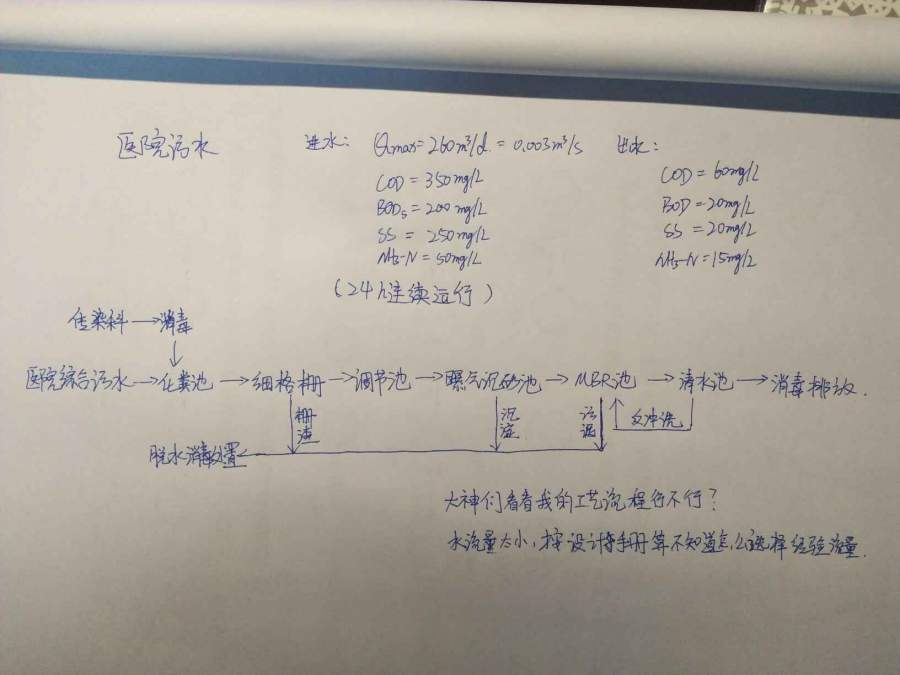 医院污水
进水: Qmax=260m³/d = 0.003m³/s
COD = 350mg/L
BOD₅ = 200mg/L
SS = 250mg/L
NH₃-N = 50mg/L
(24h连续运行)
出水:
COD = 60mg/L
BOD = 20mg/L
SS = 20mg/L
NH₃-N = 15mg/L
传染科→消毒
↓
医院综合污水→化粪池→细格栅→调节池→曝气沉砂池→MBR池→清水池→消毒排放.
栅渣
沉渣
污泥
反冲洗
脱水消毒处置
大神们看看我的工艺流程行不行?
水流量太小,按设计手册算不知道怎么选择经验流量.